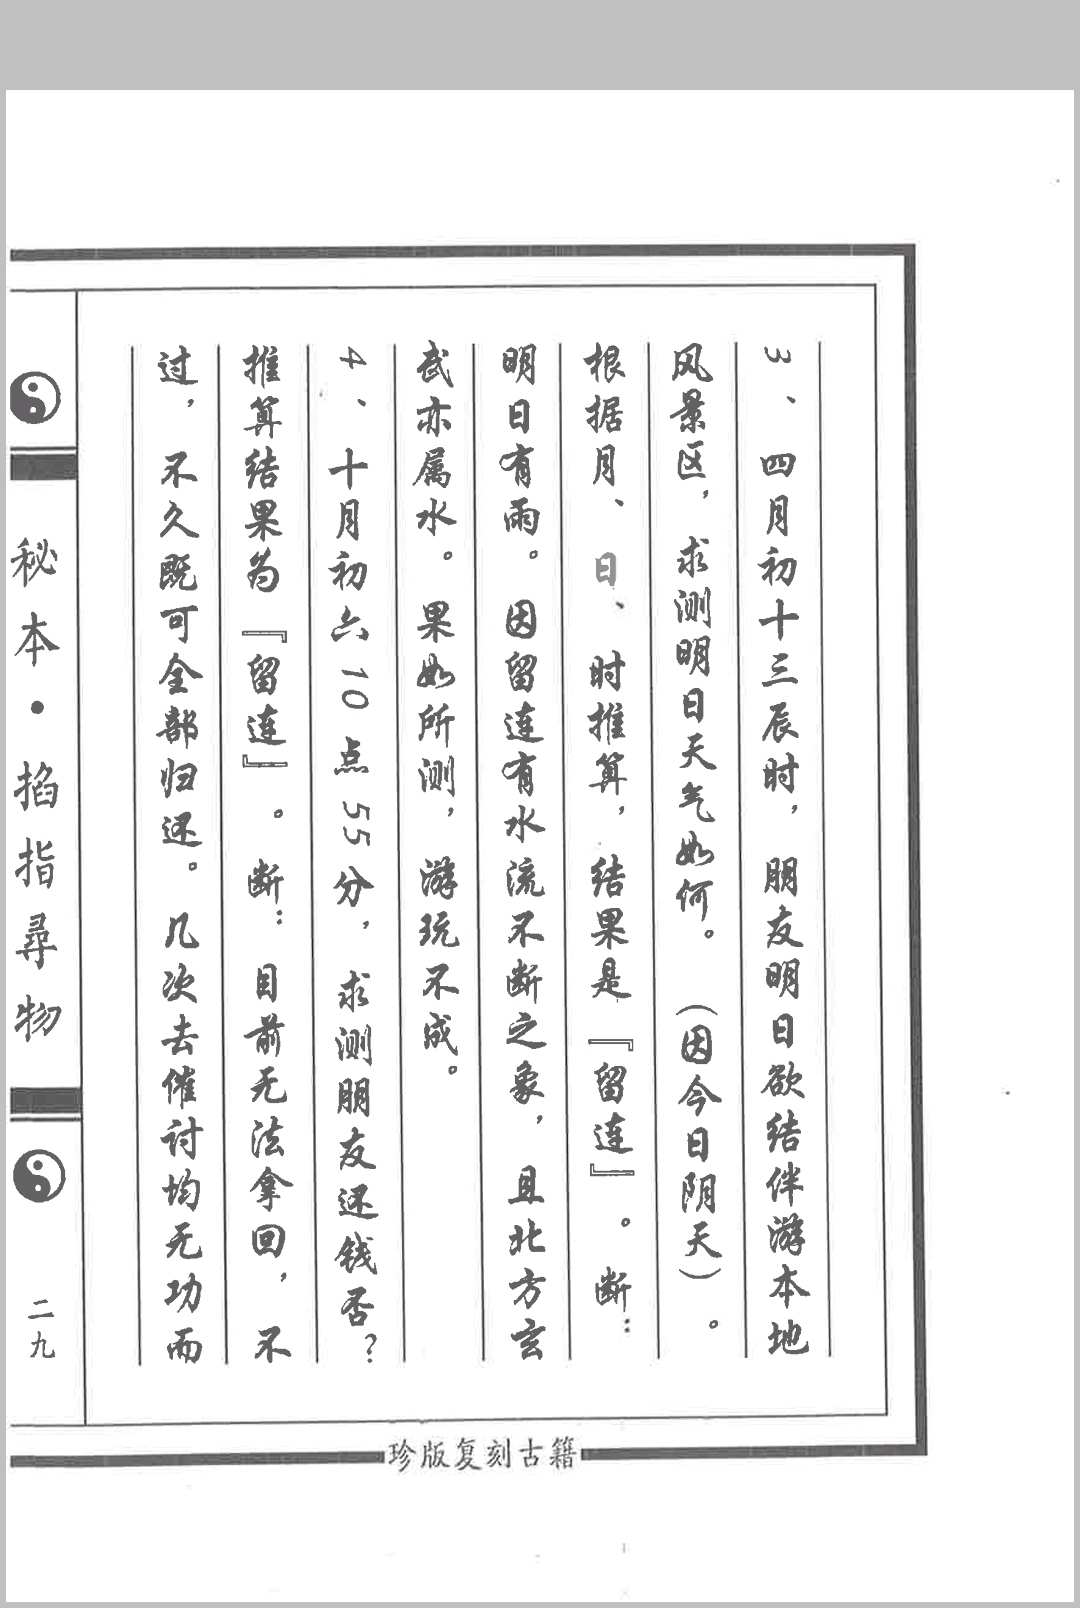 3、四月初十三辰时，朋友明日欲结伴游本地
风景区，求测明日天气如何。（因今日阴天）。
根据月、日、时推算，结果是『留连』。断：
明日有雨。因留连有水流不断之象，且北方玄
武亦属水。果如所测，游玩不成。
4、十月初六10点55分，求测朋友还钱否？
推算结果为『留连』。断：目前无法拿回，不
过，不久既可全部归还。几次去催讨均无功而
秘本·掐指寻物
二九
珍版复刻古籍